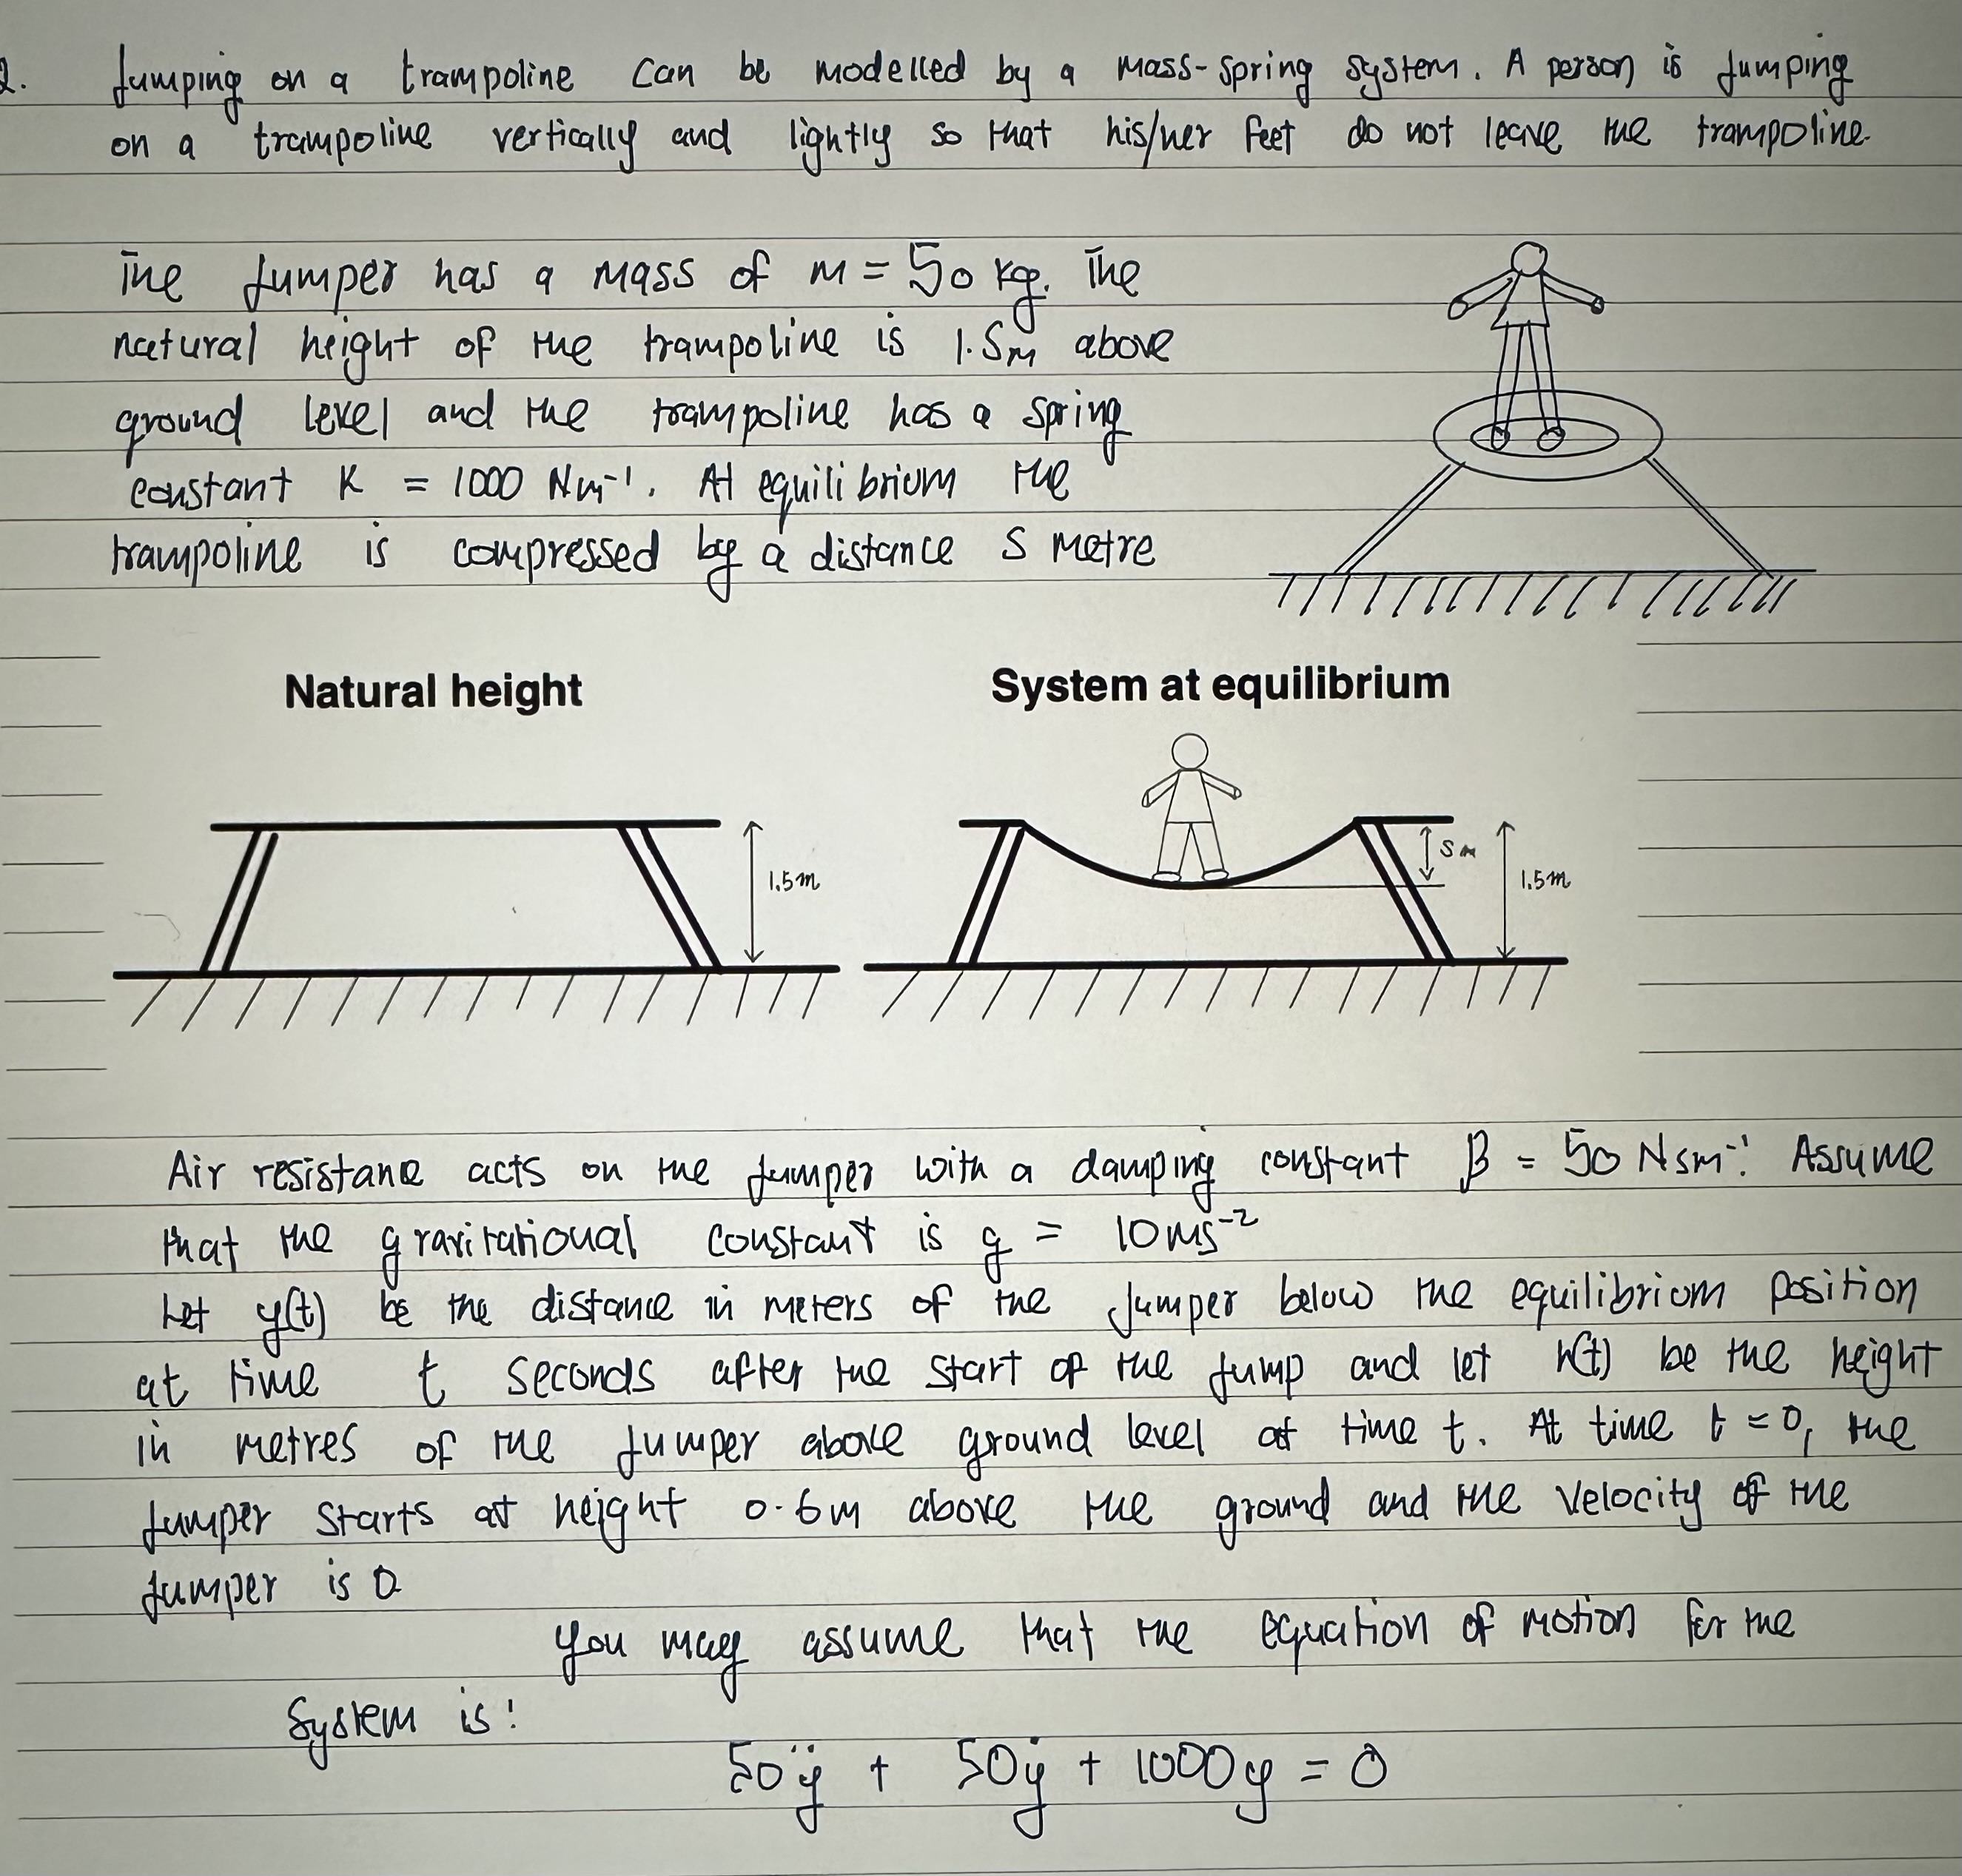 2. Jumping on a trampoline can be modelled by a mass-spring system. A person is jumping
on a trampoline vertically and lightly so that his/her feet do not leave the trampoline.
The jumper has a mass of m = 50 kg. The
natural height of the trampoline is 1.5m above
ground level and the trampoline has a spring
constant K = 1000 Nm⁻¹. At equilibrium the
trampoline is compressed by a distance S metre
Natural height
System at equilibrium
1.5m
S m
1.5m
Air resistance acts on the jumper with a damping constant β = 50 Nsm⁻¹. Assume
that the gravitational constant is g = 10ms⁻²
Let y(t) be the distance in meters of the jumper below the equilibrium position
at time t seconds after the start of the jump and let h(t) be the height
in metres of the jumper above ground level at time t. At time t = 0, the
jumper starts at height 0.6m above the ground and the velocity of the
jumper is 0
you may assume that the equation of motion for the
system is:
50ÿ + 50ẏ + 1000y = 0